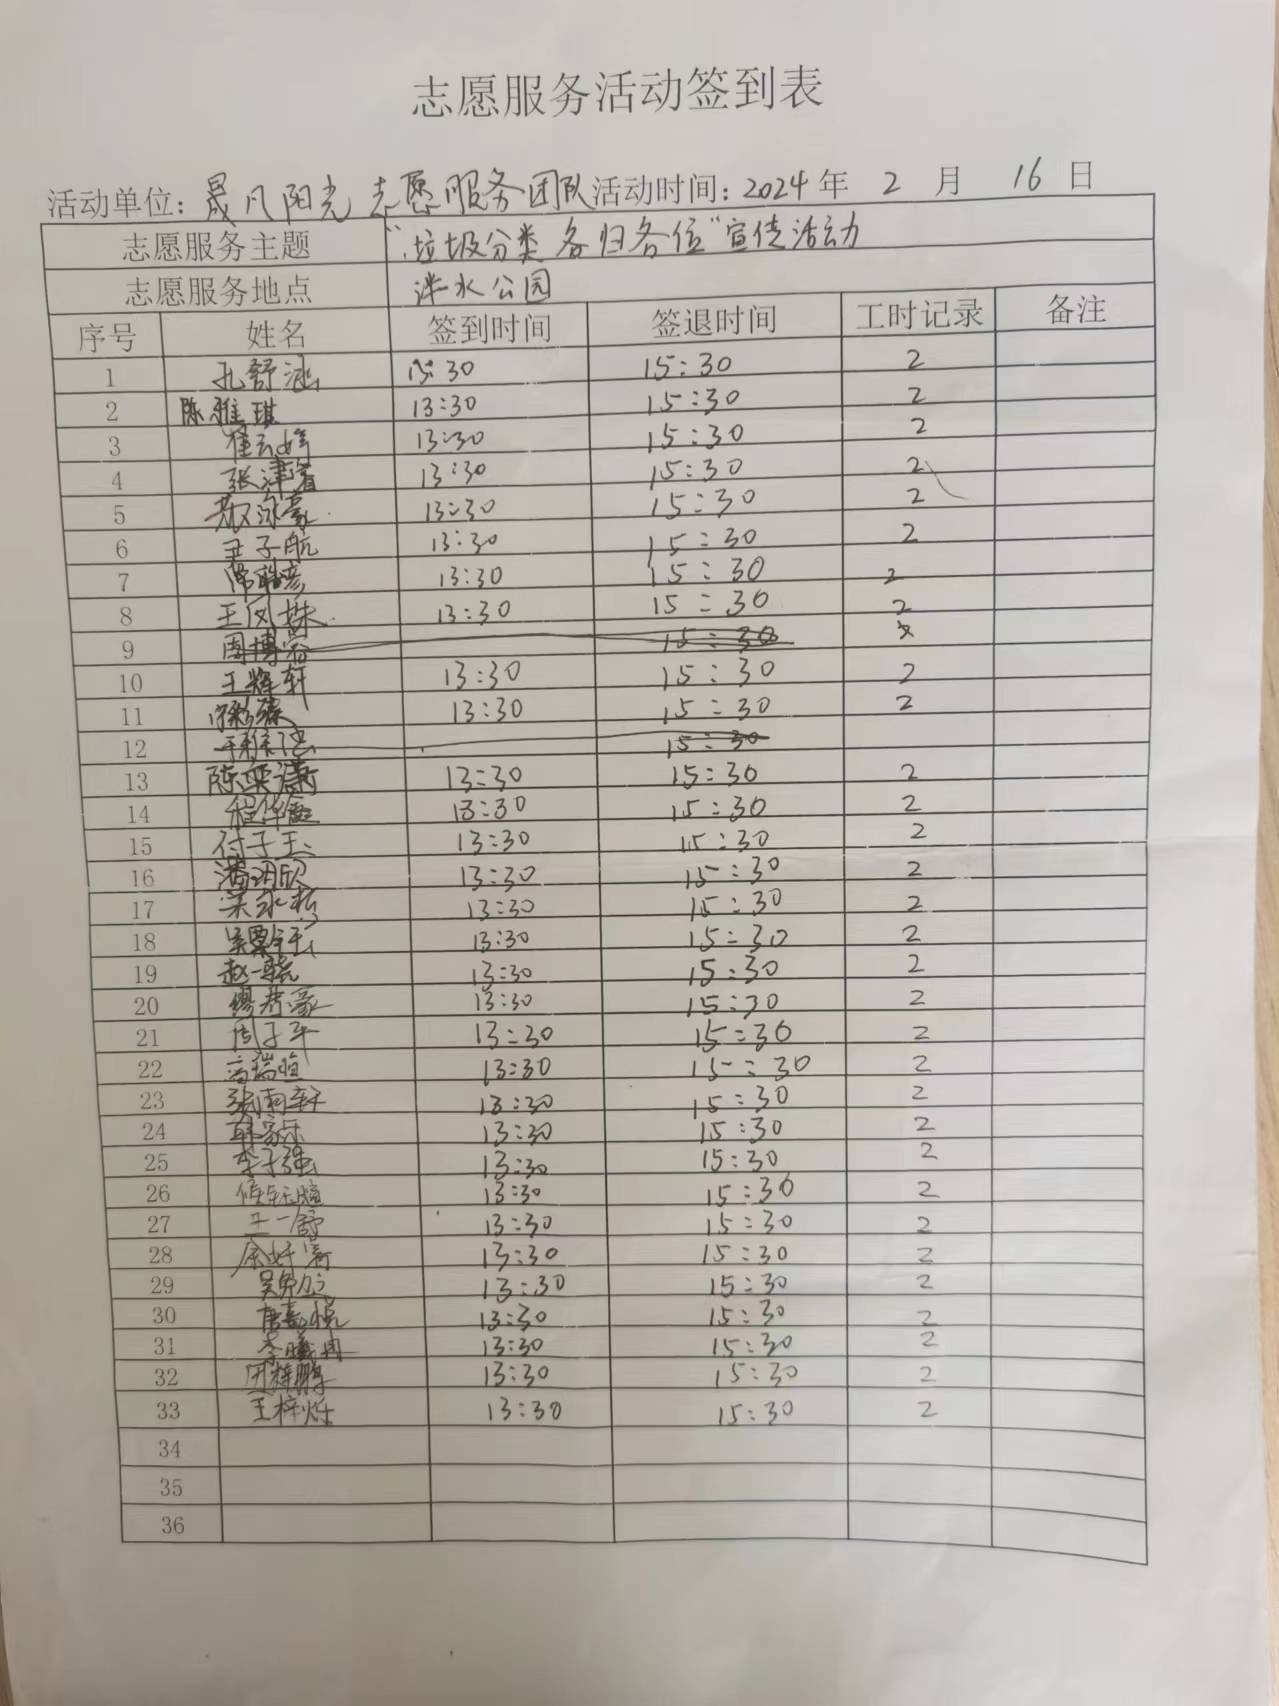 志愿服务活动签到表
活动单位：晟凡阳光志愿服务团队活动时间：2024年 2 月 16 日
志愿服务主题 “垃圾分类 各归各位”宣传活动
志愿服务地点 泮水公园
序号 姓名 签到时间 签退时间 工时记录 备注
1 孔舒涵 15:30 15:30 2
2 陈雅琪 13:30 15:30 2
3 崔 13:30 15:30 2
4 张津 13:30 15:30 2
5 13:30 15:30 2
6 王子航 13:30 15:30 2
7 13:30 15:30 2
8 王凤姝 13:30 15:30 2
9 周博容 15:30
10 王辉轩 13:30 15:30 2
11 13:30 15:30 2
12 15:30
13 陈 13:30 15:30 2
14 程华 13:30 15:30 2
15 付子玉 13:30 15:30 2
16 潘玥欣 13:30 15:30 2
17 13:30 15:30 2
18 13:30 15:30 2
19 赵一 13:30 15:30 2
20 13:30 15:30 2
21 周子平 13:30 15:30 2
22 高瑞暄 13:30 15:30 2
23 轩 13:30 15:30 2
24 13:30 15:30 2
25 李子强 13:30 15:30 2
26 13:30 15:30 2
27 王一舒 13:30 15:30 2
28 13:30 15:30 2
29 吴 13:30 15:30 2
30 唐嘉悦 13:30 15:30 2
31 李曦冉 13:30 15:30 2
32 鹏 13:30 15:30 2
33 王梓烁 13:30 15:30 2
34
35
36